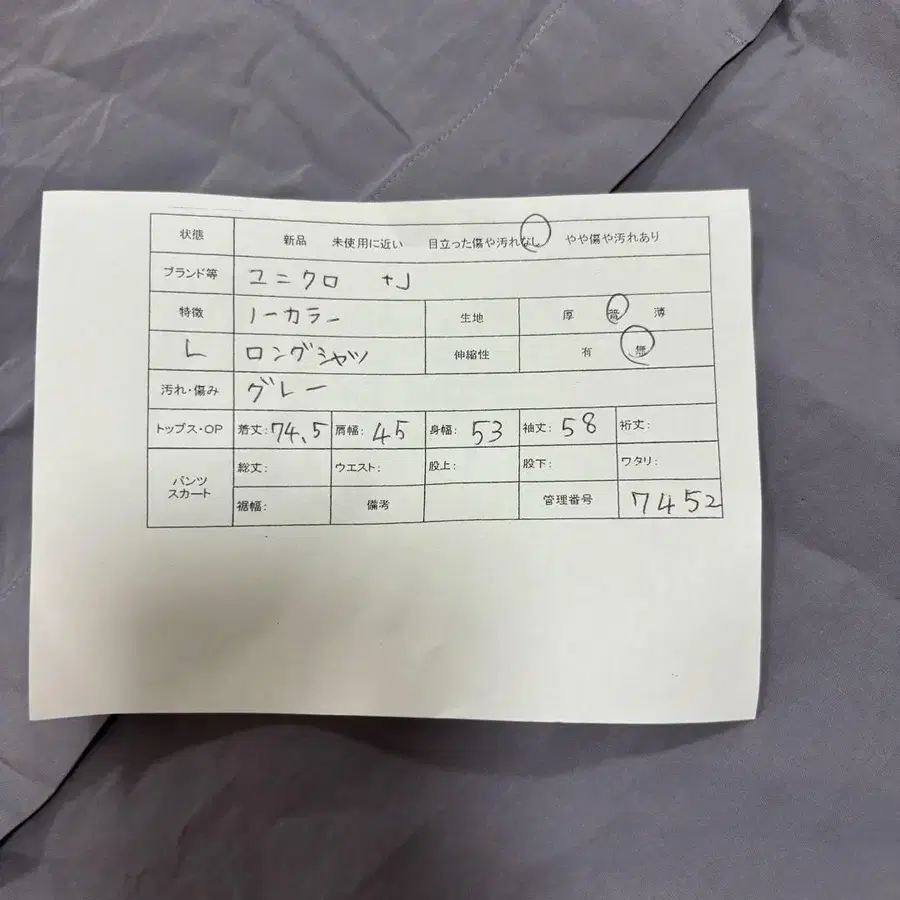 状態 新品 未使用に近い 目立った傷や汚れなし やや傷や汚れあり
ブランド等 ユニクロ +J
特徴 ノーカラー 生地 厚 普 薄
L ロングシャツ 伸縮性 有 無
汚れ・傷み グレー
トップス・OP 着丈:74.5 肩幅:45 身幅:53 袖丈:58 裄丈:
パンツ スカート 総丈: ウエスト: 股上: 股下: ワタリ:
裾幅: 備考 管理番号 7452